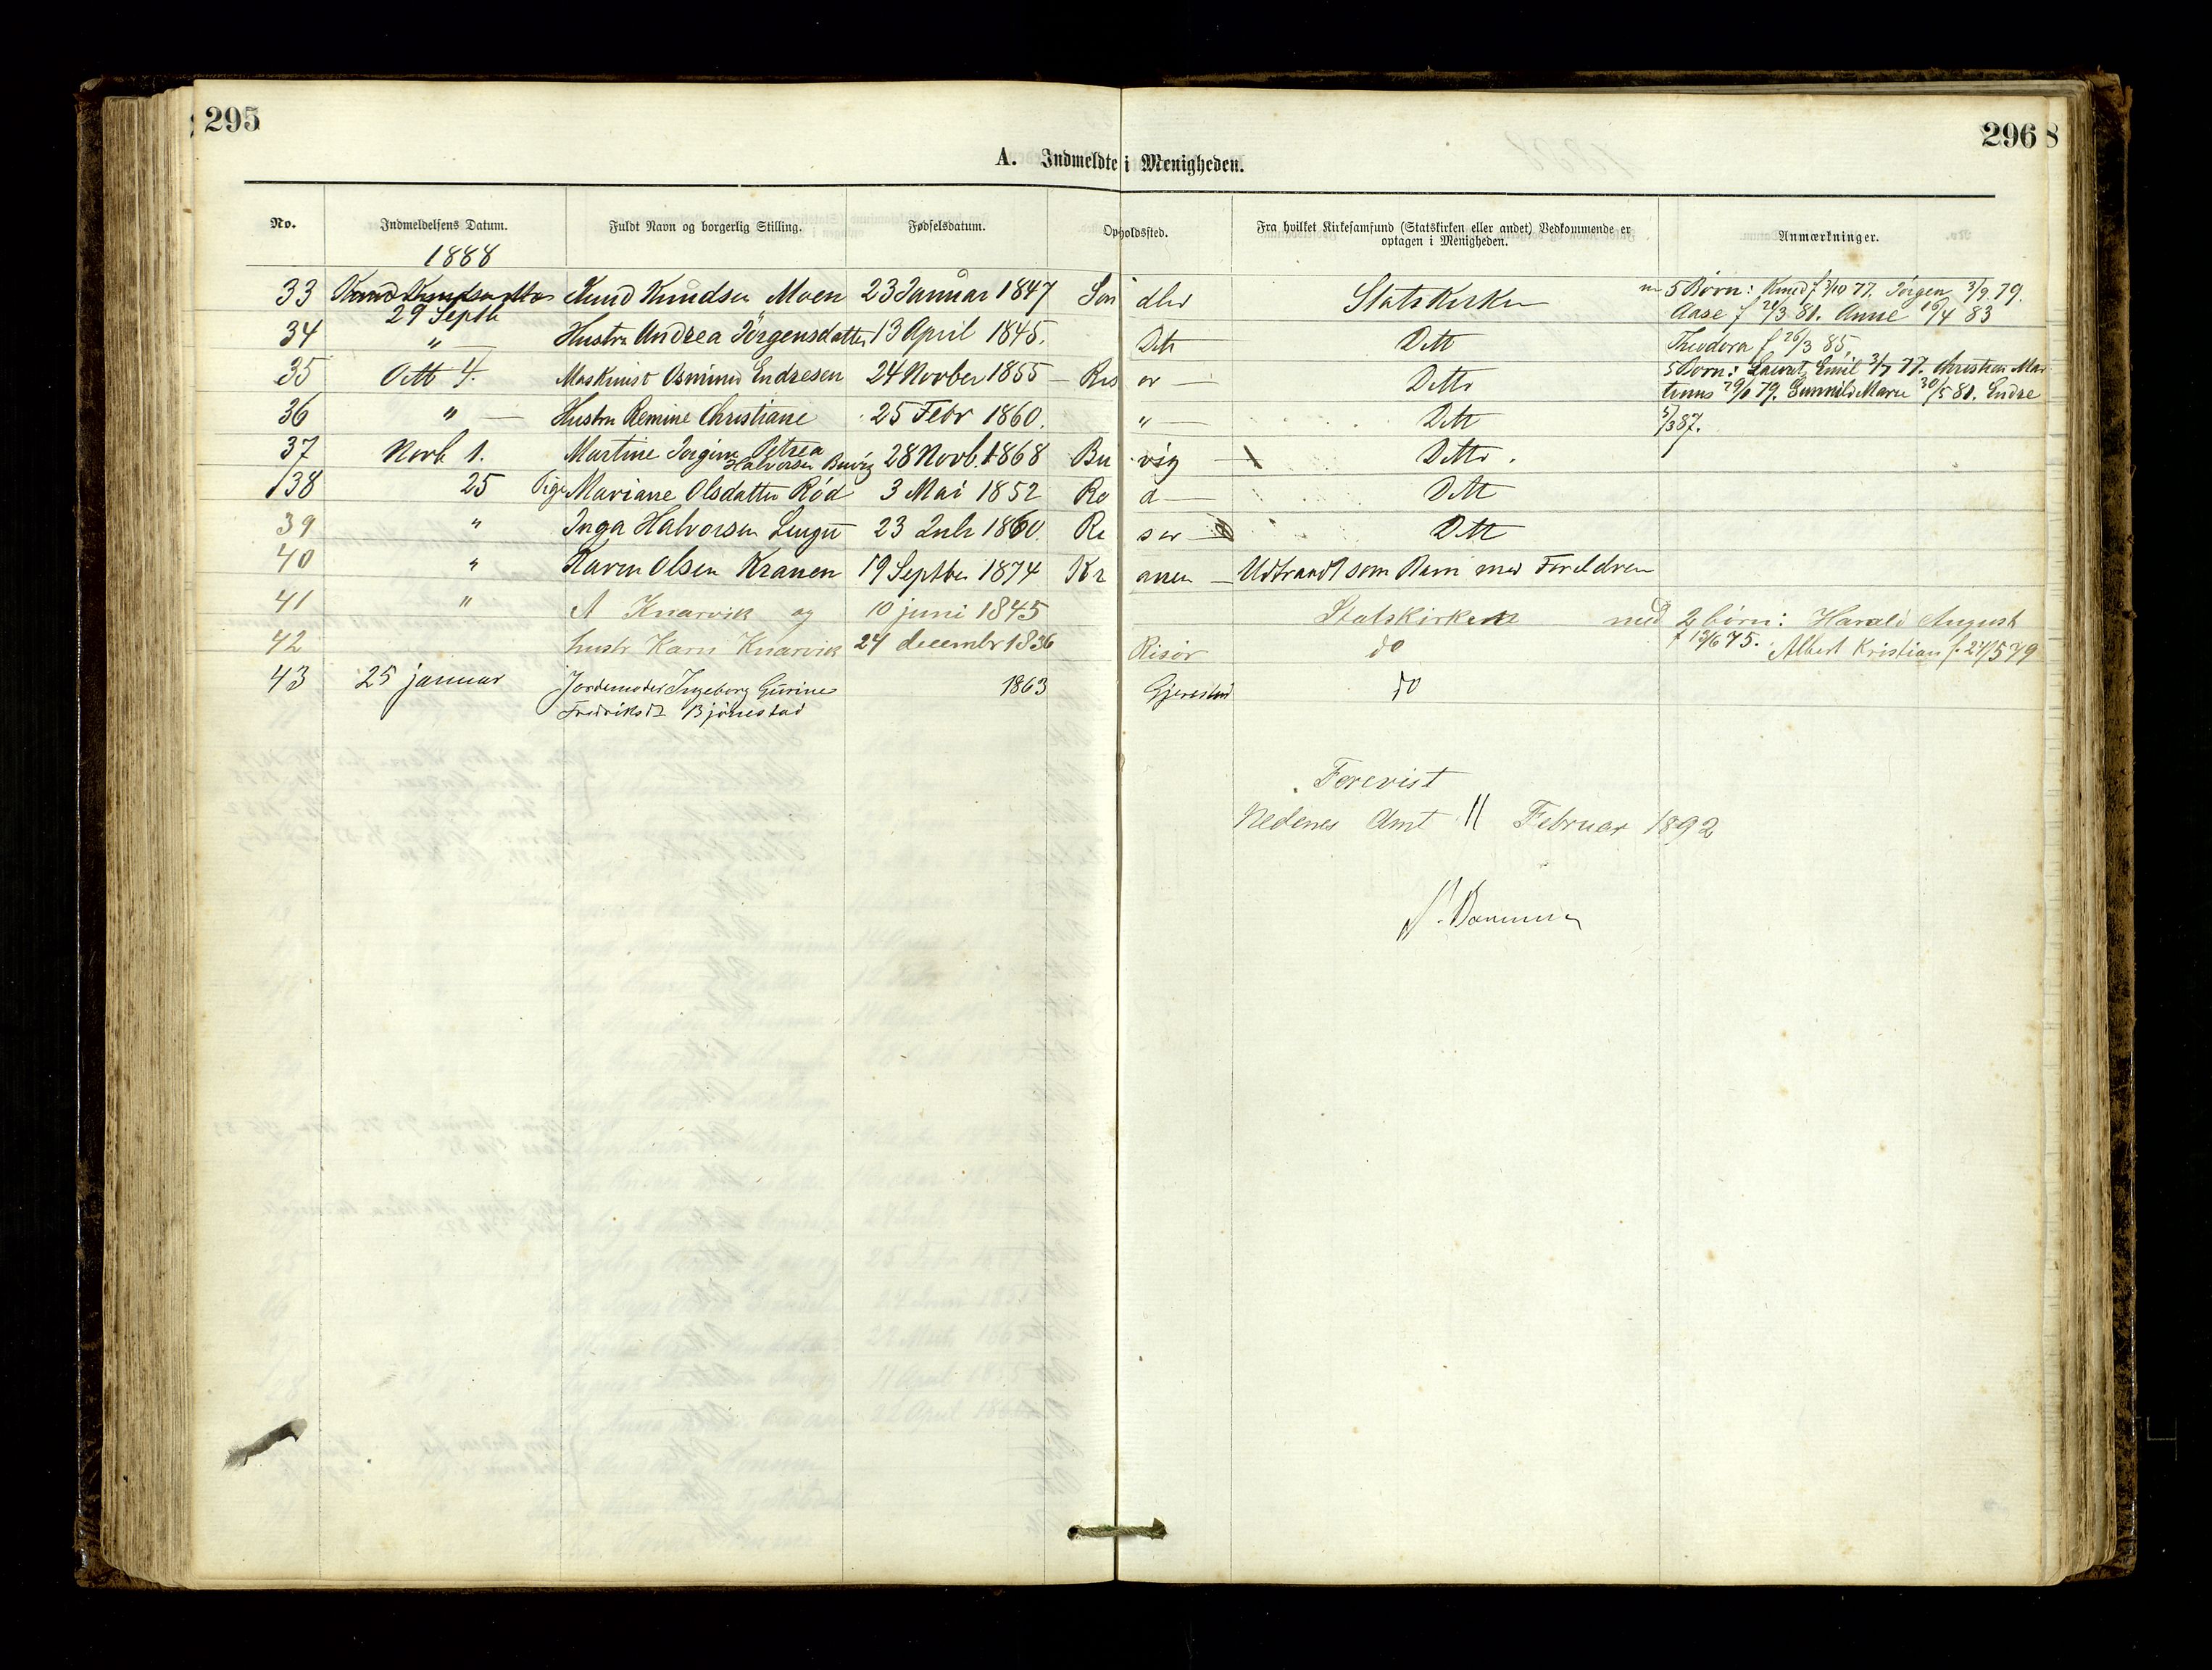 295
296
8
A. Indmeldte i Menigheden.
No. Indmeldelsens Datum. Fuldt Navn og borgerlig Stilling. Fødselsdatum. Opholdssted. Fra hvilket Kirkesamfund (Statskirken eller andet) Vedkommende er optagen i Menigheden. Anmærkninger.
1888
33 Knud Knudsen Moen 23 Januar 1847 Søndeled Statskirken 5 Børn: Knud f. 3/10 77. Jörgen 3/9 79.
29 Septb Aase f 21/3 81. Anne 16/4 83
34 " Hustru Andrea Jörgensdatter 13 April 1845. Ditto Ditto Theodora f 26/3 85.
35 Octb 4. Maskinist Osmund Endresen 24 Novber 1855 — Risør — Ditto 5 Børn: Lauritz Emil 3/7 77. Christian Mar
tinus 29/8 79. Gunnild Marie 30/5 81. Endre
36 " — Hustru Remine Christiane 25 Febr 1860. " — Ditto 5/3 87.
37 Novb 1. Martine Jorgine Petrea
Halvorsen Buvig 28 Novb. 1868 Buvig — Ditto.
38 25 Pige Mariane Olsdatter Rød 3 Mai 1852 Rød — Ditto
39 " Inga Halvorsen 23 Juli 1860. Risør — Ditto
40 " Karen Olsen Kranen 19 Septber 1874 Kranen — Udtraadt som Barn med Foreldren
41 " A Knarvik og 10 juni 1845 Statskirken med 2 børn: Harald August
42 hustr Karn Knarvik 24 decembr 1836 Risör do f 13/6 75. Albert Kristian f. 24/5 79
43 25 januar Jordemoder Ingeborg Gurine 1863 Gjerestad do
Fredriksdt Bjönestad
Forevist
Nedenes Amt 11 Februar 1892